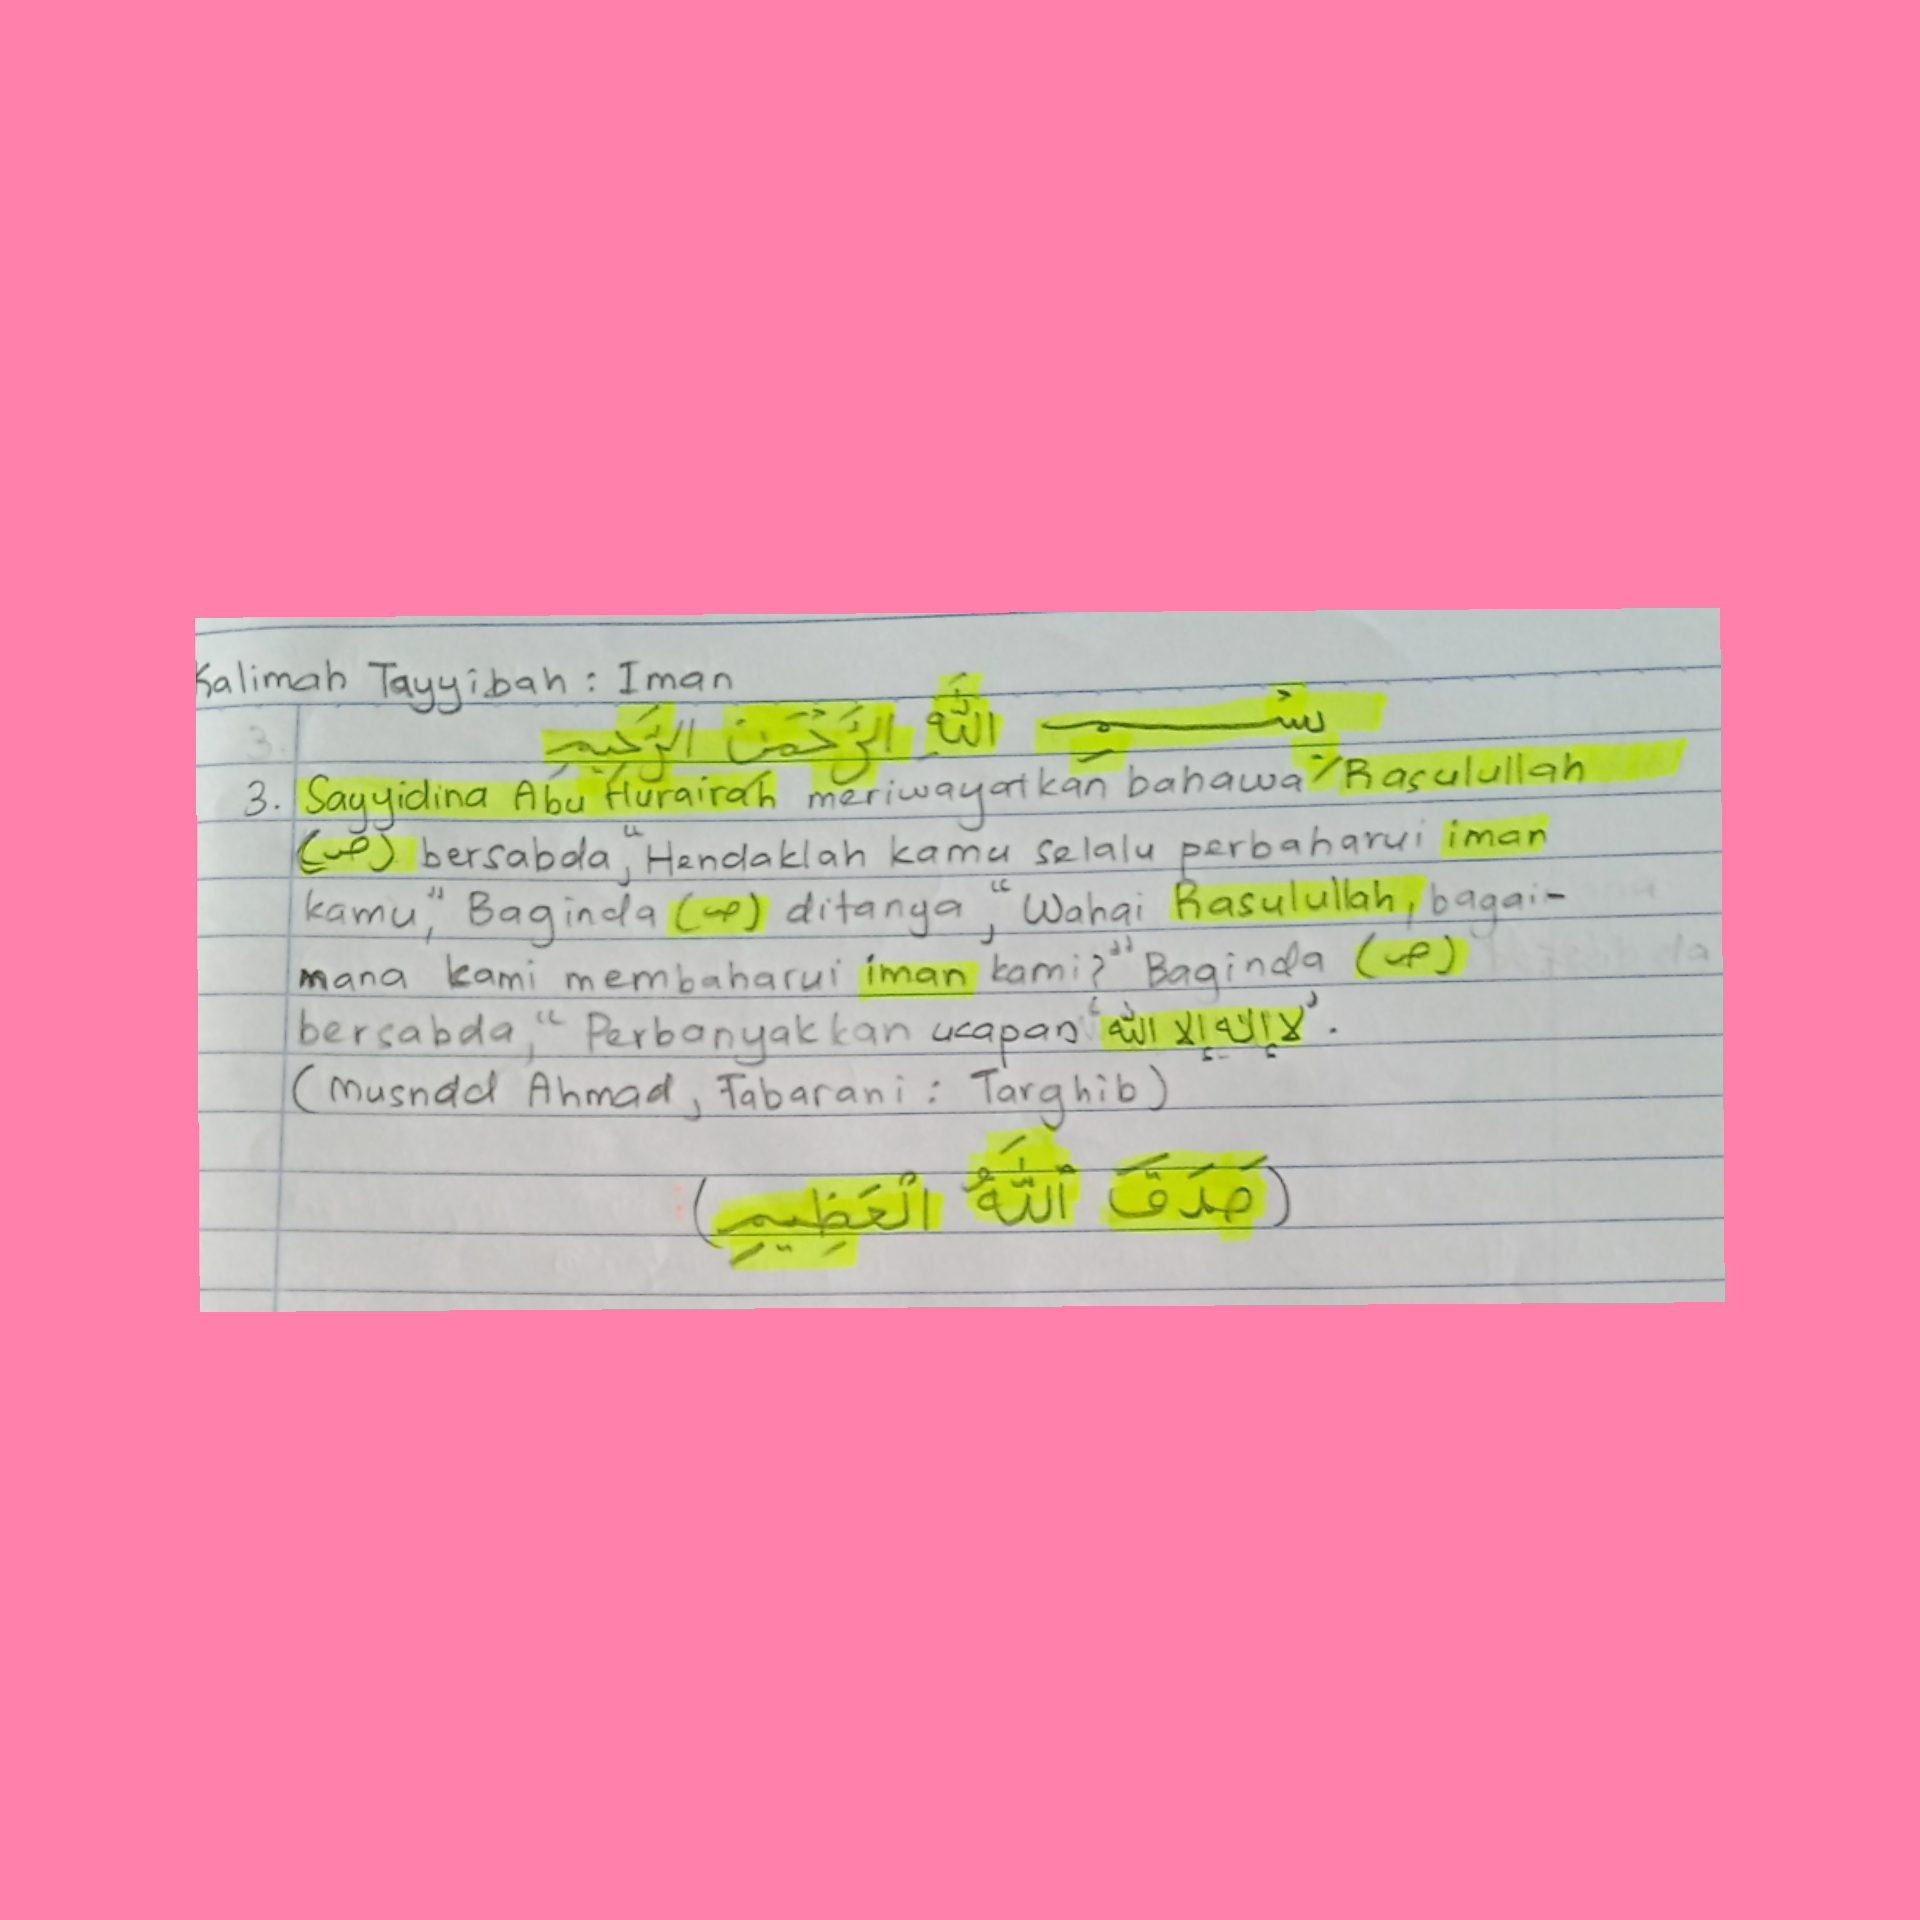 Kalimah Tayyibah : Iman
بِسْمِ اللَّهِ الرَّحْمَنِ الرَّحِيمِ
3. Sayyidina Abu Hurairah meriwayatkan bahawa Rasulullah
(ص) bersabda, "Hendaklah kamu selalu perbaharui iman
kamu," Baginda (ص) ditanya, "Wahai Rasulullah, bagai-
mana kami membaharui iman kami?" Baginda (ص)
bersabda, "Perbanyakkan ucapan 'لا إله إلا الله'.
(Musnad Ahmad, Tabarani : Targhib)
(صَدَقَ اللَّهُ الْعَظِيمِ)